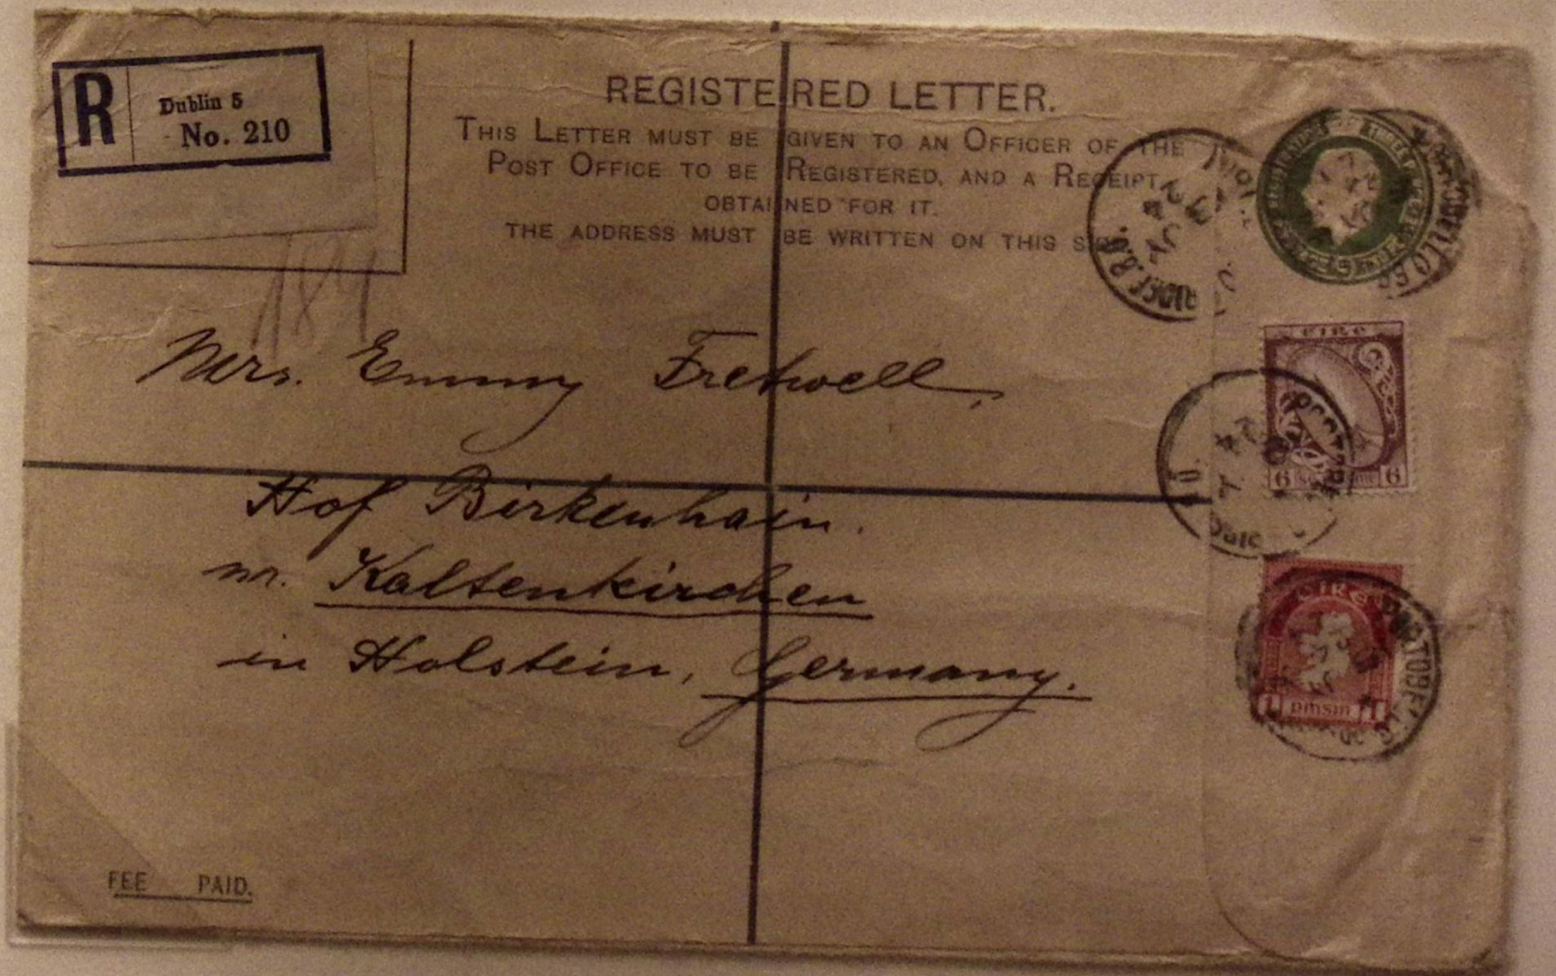 R
Dublin 5
No. 210
REGISTERED LETTER.
THIS LETTER MUST BE GIVEN TO AN OFFICER OF THE
POST OFFICE TO BE REGISTERED, AND A RECEIPT
OBTAINED FOR IT.
THE ADDRESS MUST BE WRITTEN ON THIS SIDE.
184
Mrs. Emmy Fretwell,
Hof Birkenhain.
nr. Kaltenkirchen
in Holstein, Germany.
éire
6 6
éire
1 pinsin 1
PORTOBELLO
FEE PAID.